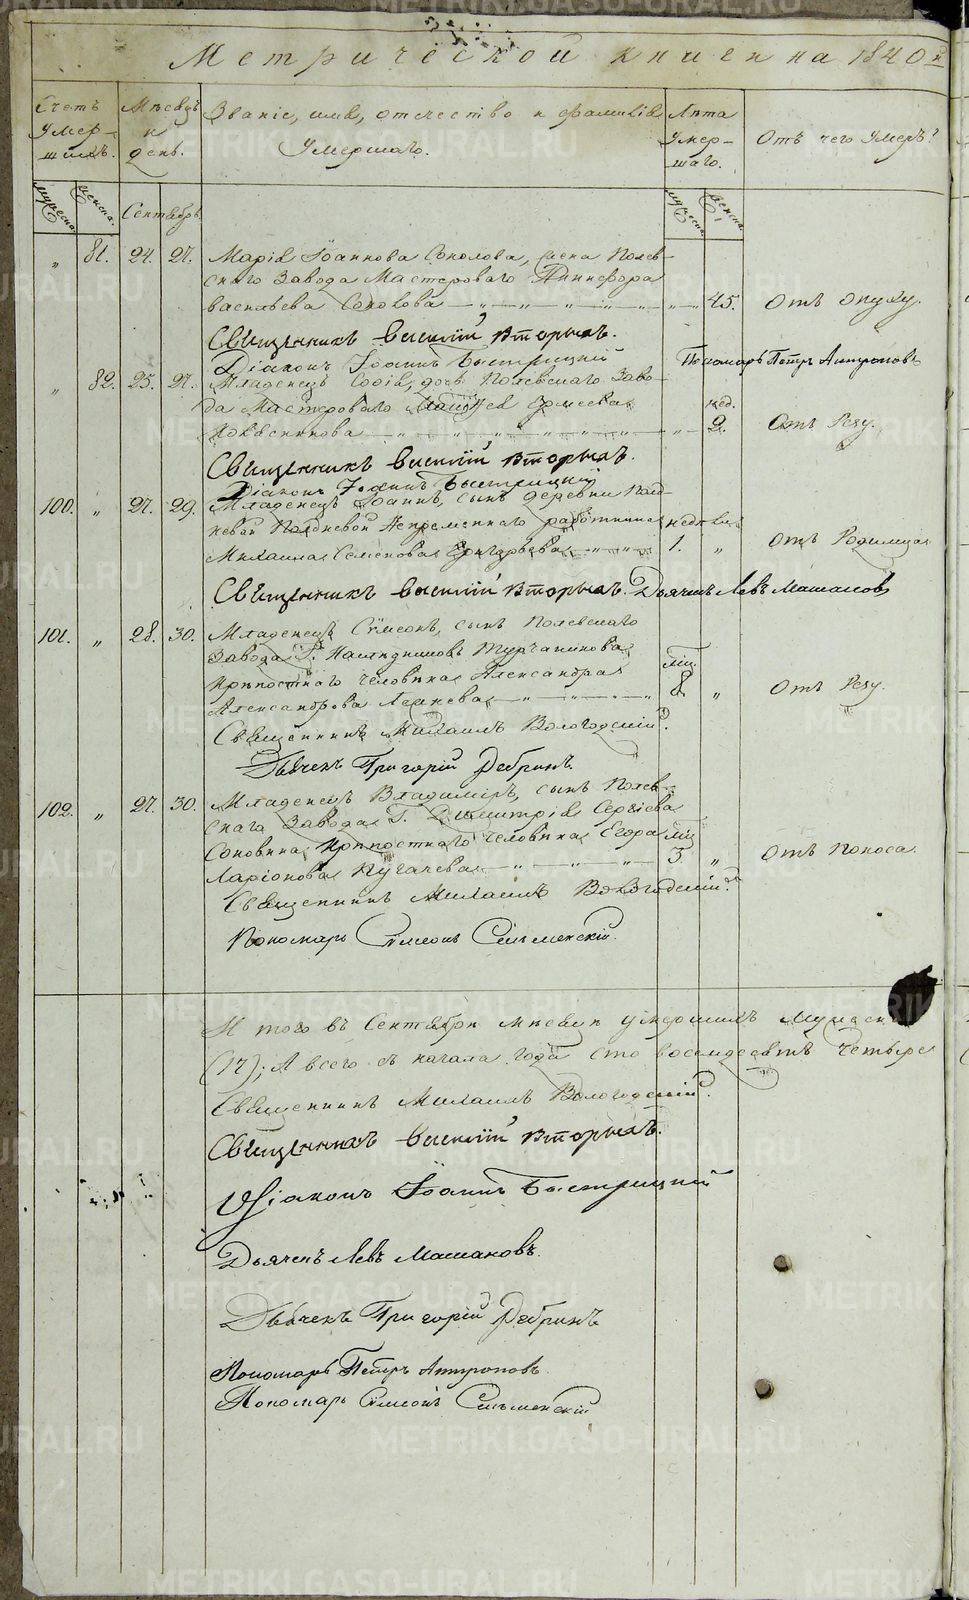 Метрической книги на 1840й
Счетъ умер-шихъ.
Мѣсяцъ и день.
Званіе, имя, отчество и фамилія умершаго.
Лѣта умер-шаго.
Отъ чего умеръ?
мужеска. женска. Сентябрь. мужеска женска
„ 81. 24. 27. Марія Іоаннова Соколова, жена Полев-
скаго Завода Мастероваго Никифора
Васильева Соколова — „ — „ — „ — „ 45. Отъ опуху.
Священникъ Василій Вторыхъ.
Діаконъ Іоаннъ Быстрицкій Пономарь Петръ Антроповъ
„ 82. 25. 27. Младенецъ Софія, дочь Полевскаго Заво-
да Мастероваго Матѳея Ермеева нед.
— „ — „ — „ — „ — „ 2. Отъ Резу.
Священникъ Василій Вторыхъ.
Діаконъ Іоаннъ Быстрицкій
100. „ 27. 29. Младенецъ Іоаннъ, сынъ деревни Пол-
невой Непременнаго работника недѣль
Михаила Семенова Григорьева — „ — „ 1. „ Отъ Родимца
Священникъ Василій Вторыхъ. Дьячекъ Левъ Машановъ
101. „ 28. 30. Младенецъ Сѵмеонъ, сынъ Полевскаго
Завода Г. Наслѣдниковъ Турчанинова
крѣпостнаго человѣка Александра мѣс.
Александрова — „ — „ — „ 8. „ Отъ Резу.
Священникъ Михаилъ Вологодскій.
Дьячекъ Григорій Рѣбринъ
102. „ 27. 30. Младенецъ Владиміръ, сынъ Полев-
скаго Завода Г. Димитрія Сергіева
Соловина крѣпостнаго человѣка Егора мѣс
Ларіонова Пугачева — „ — „ — „ 3 „ Отъ Поноса
Священникъ Михаилъ Вологодскій.
Пономарь Сѵмеонъ Сельменскій.
И того въ Сентябрѣ мѣсяцѣ умершихъ Мужеска
(17); А всего съ начала года сто восемдесятъ четыре
Священникъ Михаилъ Вологодскій.
Священникъ Василій Вторыхъ.
Діаконъ Іоаннъ Быстрицкій
Дьячекъ Левъ Машановъ.
Дьячекъ Григорій Рѣбринъ
Пономарь Петръ Антроповъ
Пономарь Сѵмеонъ Сельменскій
METRIKI.GASO-URAL.RU